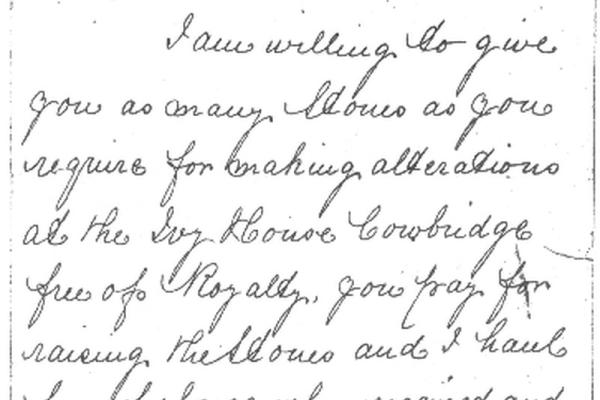 I am willing to give
you as many Stones as you
require for making alterations
at the Ivy House Cowbridge
free of Royalty, you pay for
raising the Stones and I haul
required and